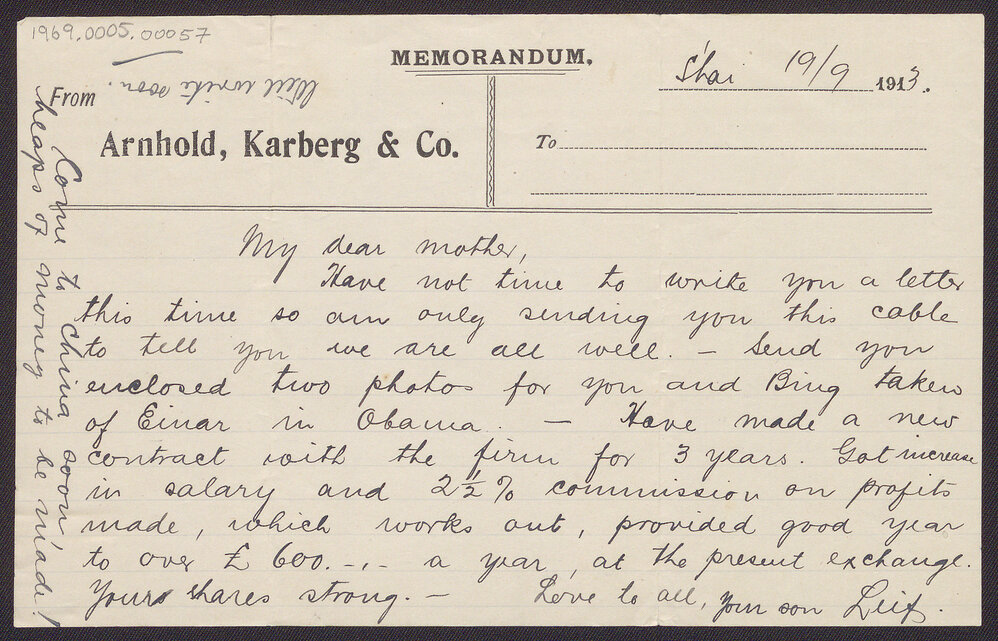 1969.0005.00057
MEMORANDUM.
S'hai 19/9 1913.
From
Will write soon.
Arnhold, Karberg & Co.
To
My dear mother,
Have not time to write you a letter
this time so am only sending you this cable
to tell you we are all well. — Send you
enclosed two photos for you and Bing taken
of Einar in Obama. — Have made a new
contract with the firm for 3 years. Got increase
in salary and 2½% commission on profits
made, which works out, provided good year
to over £ 600.-.- a year, at the present exchange.
Yours shares strong. — Love to all, your son Leif.
Come to China soon!
heaps of money to be made!